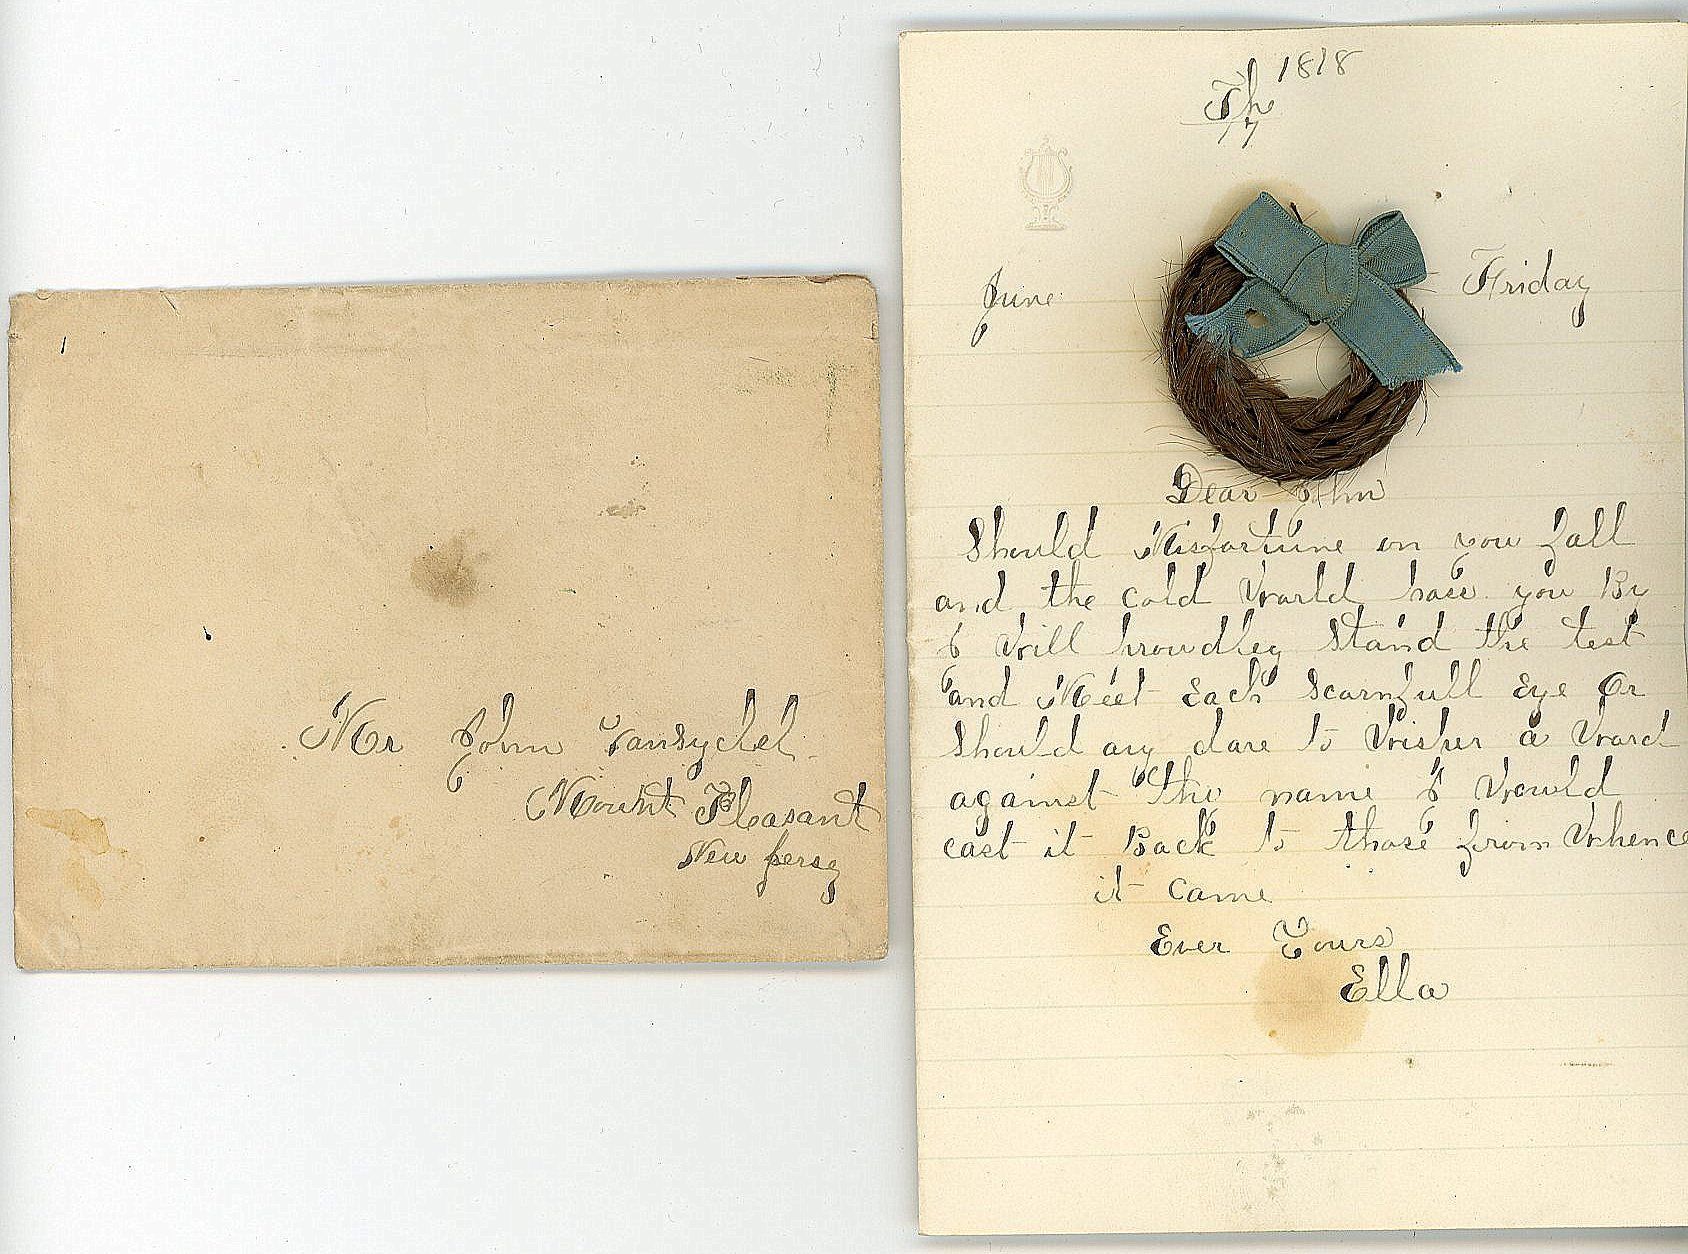 Mr John Vansyckel
Mount Pleasant
New Jersy
1878
Th
17
June
Friday
Dear John
Should Misfortune on you fall
and the cold World pass you By
I Will proudley Stand the test
and Meet Each Scornfull Eye Or
Should any dare to Wisper a Word
against thy name I Would
cast it Back to those from Whence
it came
Ever Yours
Ella